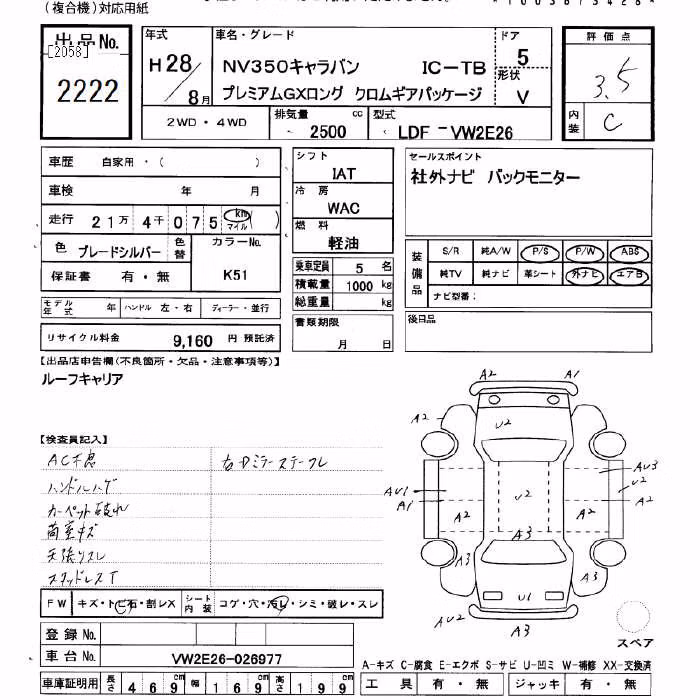 (複合機)対応用紙
出品No.
[2058]
2222
年式
H28/8月
車名・グレード
NV350キャラバン IC-TB
プレミアムGXロング クロムギアパッケージ
ドア
5
形状
V
評価点
3.5
内装
C
2WD・4WD
排気量
2500 cc
型式
LDF-VW2E26
車歴 自家用・( )
車検 年 月
走行 21万4千075 km マイル ( )
色 ブレードシルバー
色替
カラーNo.
K51
保証書 有・無
シフト
IAT
冷房
WAC
燃料
軽油
乗車定員 5 名
積載量 1000 kg
総重量 kg
書類期限
月 日
セールスポイント
社外ナビ バックモニター
装備品
S/R 純A/W P/S P/W ABS
純TV 純ナビ 革シート 外ナビ エアB
ナビ型番:
後日品
モデル年式 年 ハンドル 左・右 ディーラー・並行
リサイクル料金 9,160 円 預託済
【出品店申告欄(不良箇所・欠品・注意事項等)】
ルーフキャリア
【検査員記入】
AC不良
右Dミラーステークレ
ハンドルハゲ
カーペット破れ
荷室キズ
天張りスレ
スタッドレスT
FW キズ・トビ石・割レX
シート内装 コゲ・穴・汚レ・シミ・破レ・スレ
登録No.
車台No. VW2E26-026977
車庫証明用 長さ 469 cm 幅 169 cm 高さ 199 cm
A2 A1
A2 U2
AU3
AU1 U2 U2
A1 A2 A2 A2
A3
A3 A3
U1
AU2 A3
スペア
A-キズ C-腐食 E-エクボ S-サビ U-凹ミ W-補修 XX-交換済
工具 有・無 ジャッキ 有・無